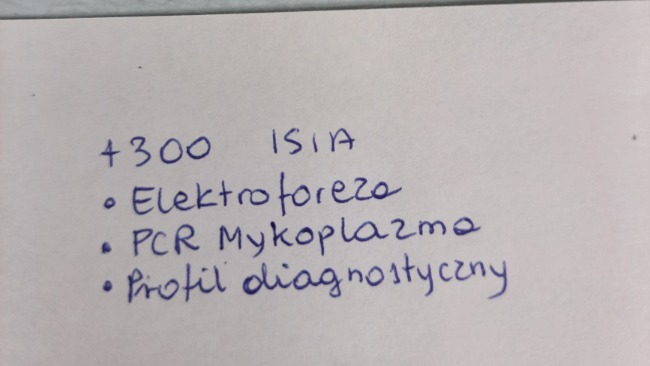 +300 ISIA
• Elektroforeza
• PCR Mykoplazma
• Profil diagnostyczny